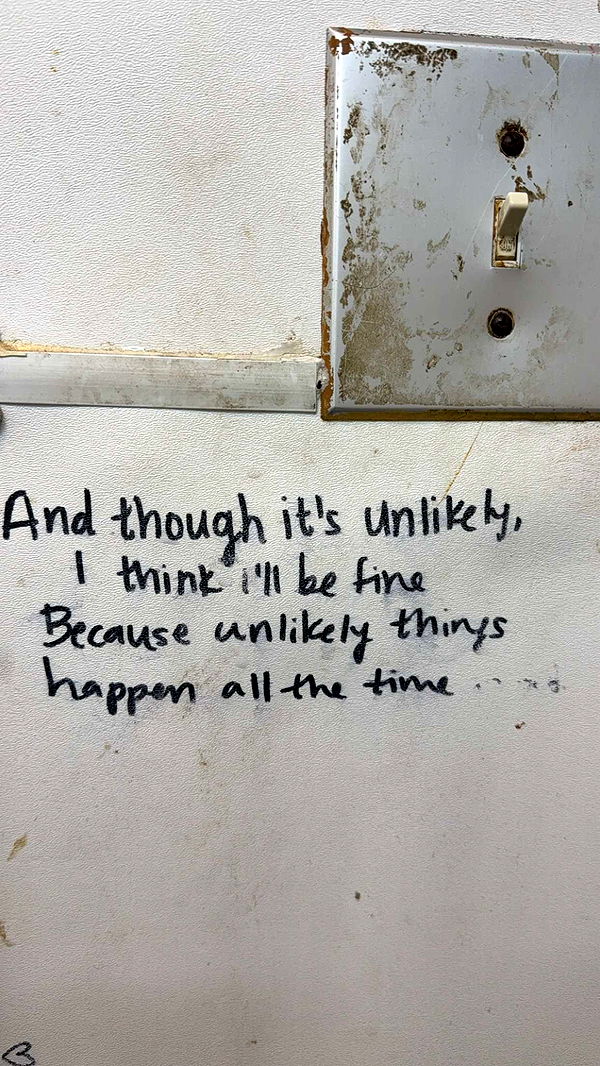 And though it's unlikely,
I think i'll be fine
Because unlikely things
happen all the time